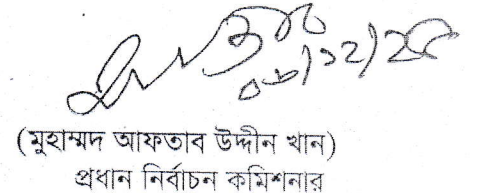 (মুহাম্মদ আফতাব উদ্দীন খান)
প্রধান নির্বাচন কমিশনার